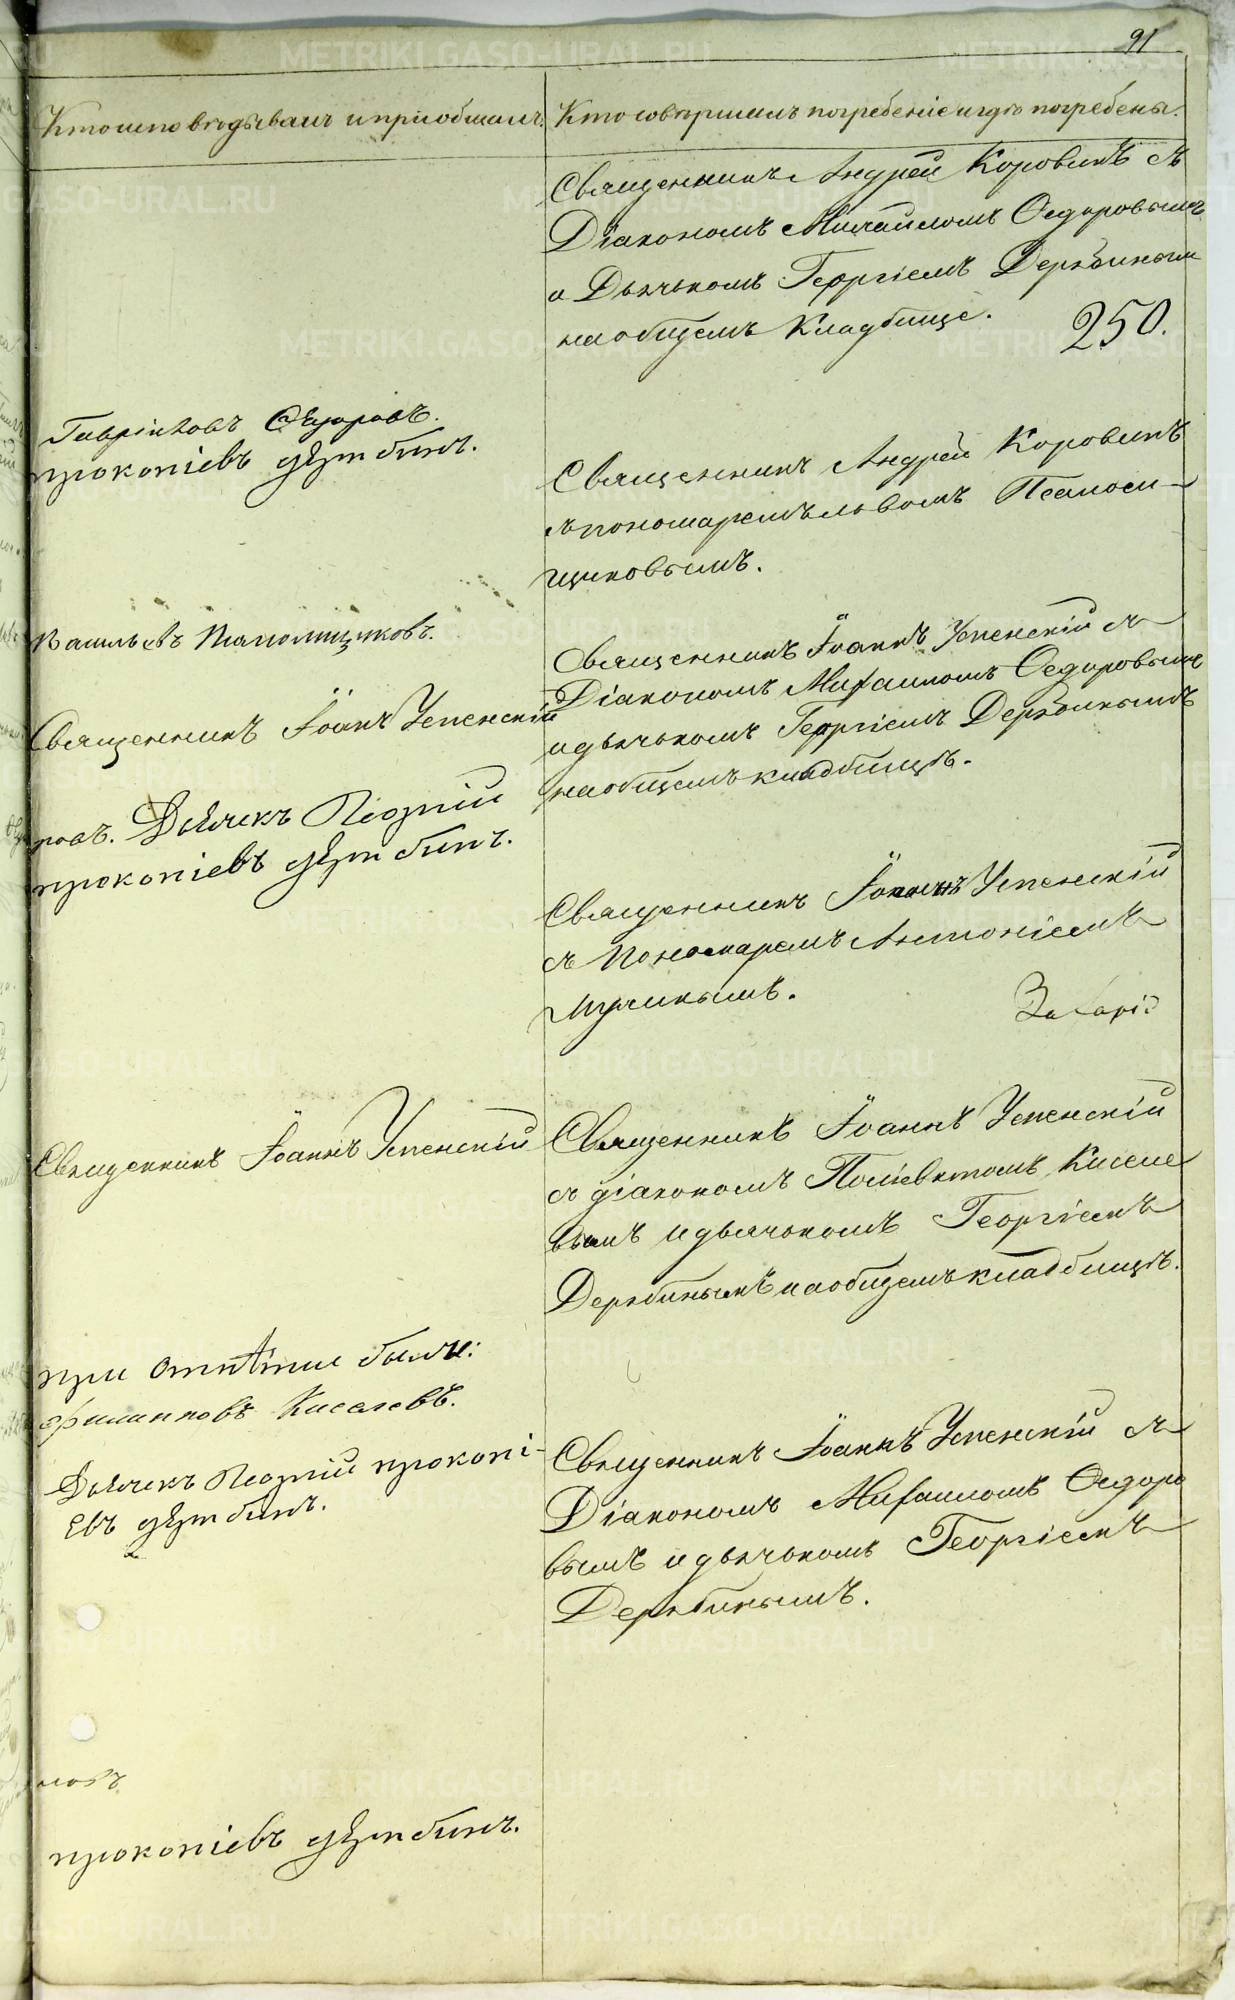 91
Кто исповѣдывалъ и пріобщалъ.
Кто совершалъ погребеніе и гдѣ погребены.
Священникъ Андрей Коровинъ съ
Діакономъ Михаиломъ Ѳедоровымъ
и Дьячькомъ Георгіемъ Дерябиным
на общемъ Кладбище.
250.
Гавріиловъ Ѳедоровъ.
Прокопіевъ Дерябинъ.
Священникъ Андрей Коровинъ
съ пономаремъ Львомъ Псаломщиковымъ.
Васильевъ Псаломщиковъ.
Священникъ Іоаннъ Успенскій съ
Діакономъ Михаиломъ Ѳедоровымъ
и дьячькомъ Георгіемъ Дерябинымъ
на общемъ кладбищѣ.
Священникъ Іоаннъ Успенскій
ровъ. Дьячекъ Георгій
Прокопіевъ Дерябинъ.
Священникъ Іоаннъ Успенскій
съ Пономаремъ Антоніемъ
Священникъ Іоаннъ Успенскій
Священникъ Іоаннъ Успенскій
съ діакономъ Поліевктомъ Киселе
вымъ и дьячькомъ Георгіемъ
Дерябинымъ на общемъ кладбищѣ.
При отпѣтіи были:
Филипповъ Киселевъ.
Дьячекъ Георгій Прокопі-
евъ Дерябинъ.
Священникъ Іоаннъ Успенскій съ
Діакономъ Михаиломъ Ѳедоро
вымъ и дьячькомъ Георгіемъ
Дерябинымъ.
Прокопіевъ Дерябинъ.
METRIKI.GASO-URAL.RU